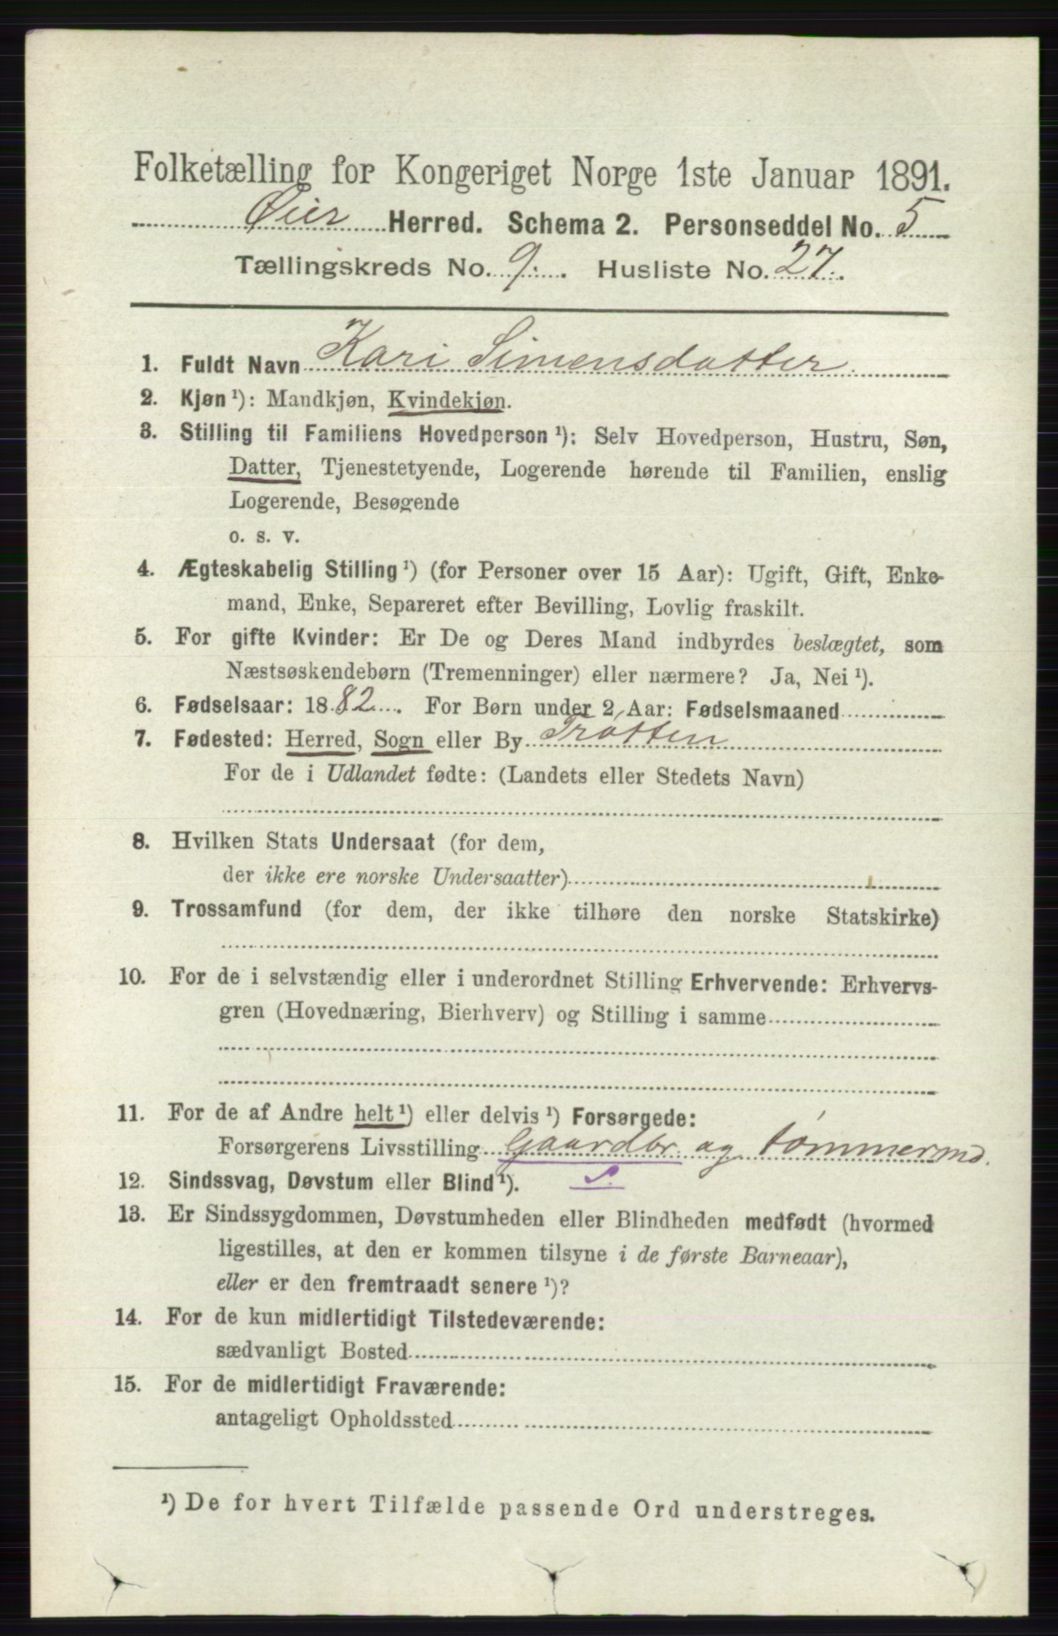 Folketælling for Kongeriget Norge 1ste Januar 1891.
Øier Herred. Schema 2. Personseddel No. 5
Tællingskreds No. 9. Husliste No. 27.
1. Fuldt Navn Kari Simensdatter.
2. Kjøn ¹): Mandkjøn, Kvindekjøn.
3. Stilling til Familiens Hovedperson ¹): Selv Hovedperson, Hustru, Søn,
Datter, Tjenestetyende, Logerende hørende til Familien, enslig
Logerende, Besøgende
o. s. v.
4. Ægteskabelig Stilling ¹) (for Personer over 15 Aar): Ugift, Gift, Enke-
mand, Enke, Separeret efter Bevilling, Lovlig fraskilt.
5. For gifte Kvinder: Er De og Deres Mand indbyrdes beslægtet, som
Næstsøskendebørn (Tremenninger) eller nærmere? Ja, Nei ¹).
6. Fødselsaar: 1882. For Børn under 2 Aar: Fødselsmaaned
7. Fødested: Herred, Sogn eller By Trotten
For de i Udlandet fødte: (Landets eller Stedets Navn)
8. Hvilken Stats Undersaat (for dem,
der ikke ere norske Undersaatter)
9. Trossamfund (for dem, der ikke tilhøre den norske Statskirke)
10. For de i selvstændig eller i underordnet Stilling Erhvervende: Erhvervs-
gren (Hovednæring, Bierhverv) og Stilling i samme
11. For de af Andre helt ¹) eller delvis ¹) Forsørgede:
Forsørgerens Livsstilling Gaardbr. og tømmermd.
12. Sindssvag, Døvstum eller Blind ¹). S.
13. Er Sindssygdommen, Døvstumheden eller Blindheden medfødt (hvormed
ligestilles, at den er kommen tilsyne i de første Barneaar),
eller er den fremtraadt senere ¹)?
14. For de kun midlertidigt Tilstedeværende:
sædvanligt Bosted
15. For de midlertidigt Fraværende:
antageligt Opholdssted
¹) De for hvert Tilfælde passende Ord understreges.